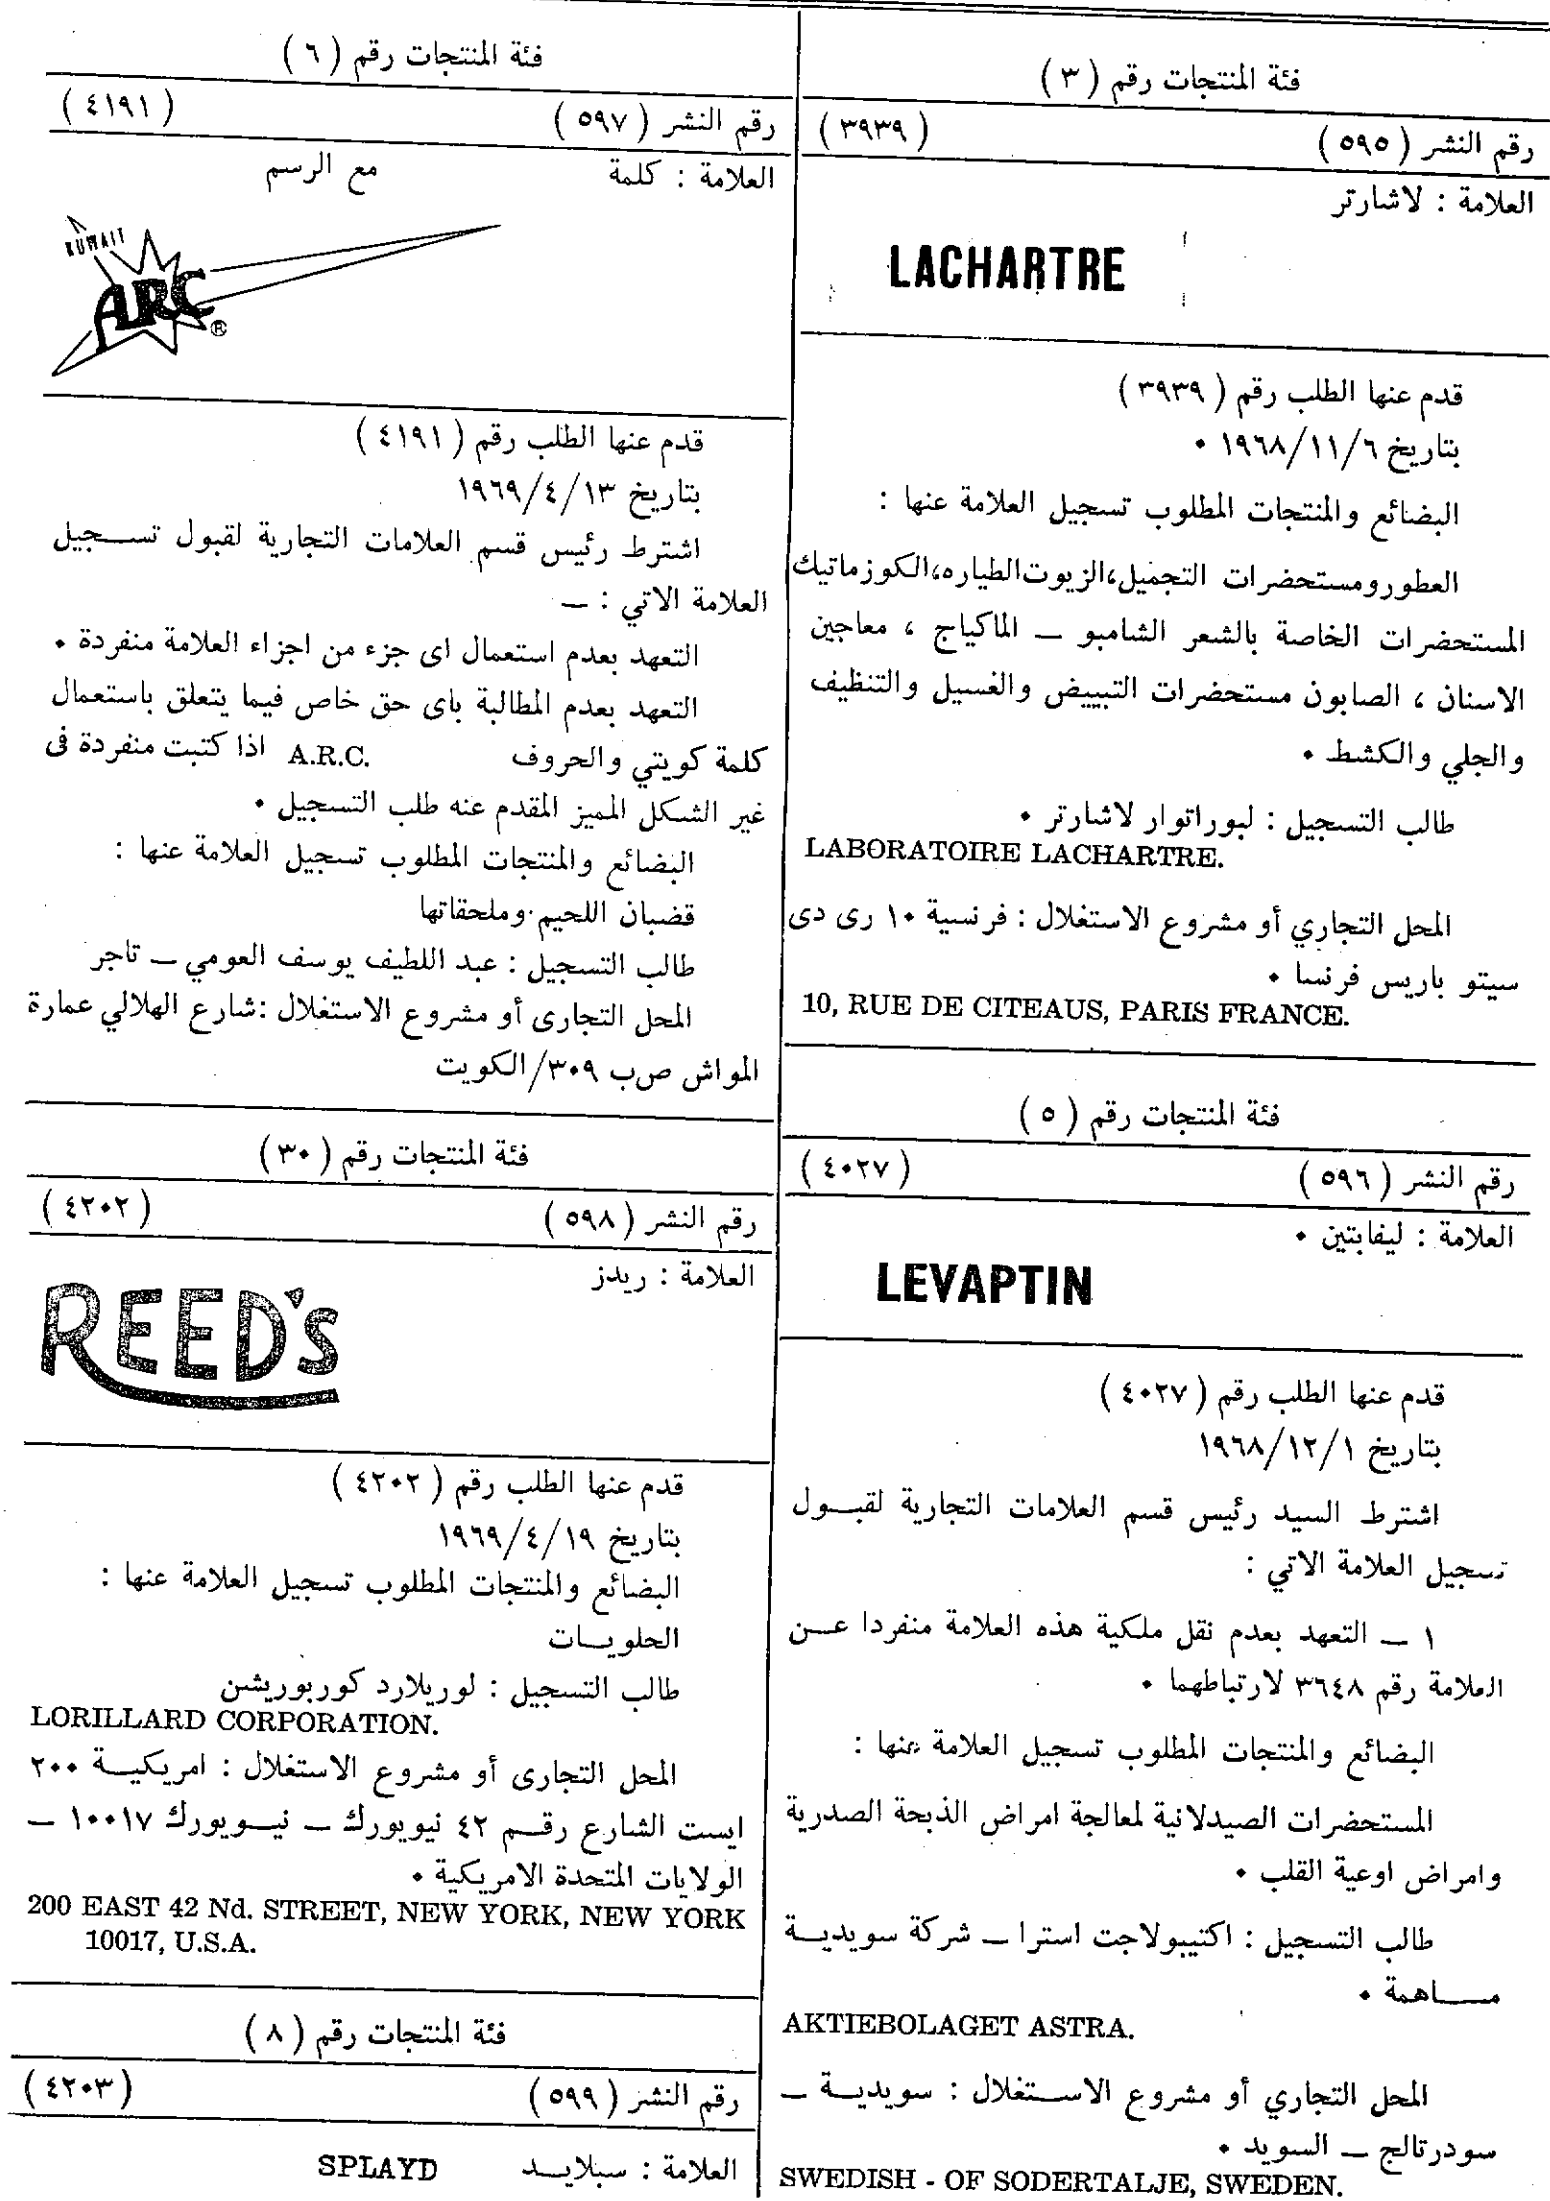 فئة المنتجات رقم ( ٣ )
رقم النشر ( ٥٩٥ ) ( ٣٩٣٩ )
العلامة : لاشارتر
LACHARTRE
قدم عنها الطلب رقم ( ٣٩٣٩ )
بتاريخ ١٩٦٨/١١/٦ ٠
البضائع والمنتجات المطلوب تسجيل العلامة عنها :
العطورومستحضرات التجميل،الزيوت الطياره،الكوزماتيك
المستحضرات الخاصة بالشعر الشامبو ــ الماكياج ، معاجين
الاسنان ، الصابون مستحضرات التبييض والغسيل والتنظيف
والجلي والكشط ٠
طالب التسجيل : لبوراتوار لاشارتر ٠
LABORATOIRE LACHARTRE.
المحل التجاري أو مشروع الاستغلال : فرنسية ١٠ رى دى
سيتو باريس فرنسا ٠
10, RUE DE CITEAUS, PARIS FRANCE.
فئة المنتجات رقم ( ٥ )
رقم النشر ( ٥٩٦ ) ( ٤٠٢٧ )
العلامة : ليفابتين ٠
LEVAPTIN
قدم عنها الطلب رقم ( ٤٠٢٧ )
بتاريخ ١٩٦٨/١٢/١
اشترط السيد رئيس قسم العلامات التجارية لقبــول
تسجيل العلامة الاتي :
١ ــ التعهد بعدم نقل ملكية هذه العلامة منفردا عــن
العلامة رقم ٣٦٤٨ لارتباطهما ٠
البضائع والمنتجات المطلوب تسجيل العلامة عنها :
المستحضرات الصيدلانية لمعالجة امراض الذبحة الصدرية
وامراض اوعية القلب ٠
طالب التسجيل : اكتيبولاجت استرا ــ شركة سويديــة
مســاهمة ٠
AKTIEBOLAGET ASTRA.
المحل التجاري أو مشروع الاســتغلال : سويديــة ــ
سودرتالج ــ السويد ٠
SWEDISH - OF SODERTALJE, SWEDEN.
فئة المنتجات رقم ( ٦ )
رقم النشر ( ٥٩٧ ) ( ٤١٩١ )
العلامة : كلمة مع الرسم
KUWAIT
ARC ®
قدم عنها الطلب رقم ( ٤١٩١ )
بتاريخ ١٩٦٩/٤/١٣
اشترط رئيس قسم العلامات التجارية لقبول تســجيل
العلامة الاتي : ــ
التعهد بعدم استعمال اى جزء من اجزاء العلامة منفردة ٠
التعهد بعدم المطالبة باى حق خاص فيما يتعلق باستعمال
كلمة كويتي والحروف A.R.C. اذا كتبت منفردة فى
غير الشكل المميز المقدم عنه طلب التسجيل ٠
البضائع والمنتجات المطلوب تسجيل العلامة عنها :
قضبان اللحيم وملحقاتها
طالب التسجيل : عبد اللطيف يوسف العومي ــ تاجر
المحل التجارى أو مشروع الاستغلال :شارع الهلالي عمارة
المواش ص٠ب ٣٠٩/الكويت
فئة المنتجات رقم ( ٣٠ )
رقم النشر ( ٥٩٨ ) ( ٤٢٠٢ )
العلامة : ريدز
REED'S
قدم عنها الطلب رقم ( ٤٢٠٢ )
بتاريخ ١٩٦٩/٤/١٩
البضائع والمنتجات المطلوب تسجيل العلامة عنها :
الحلويــات
طالب التسجيل : لوريلارد كوربوريشن
LORILLARD CORPORATION.
المحل التجارى أو مشروع الاستغلال : امريكيــة ٢٠٠
ايست الشارع رقــم ٤٢ نيويورك ــ نيــويورك ١٠٠١٧ ــ
الولايات المتحدة الامريكية ٠
200 EAST 42 Nd. STREET, NEW YORK, NEW YORK
10017, U.S.A.
فئة المنتجات رقم ( ٨ )
رقم النشر ( ٥٩٩ ) ( ٤٢٠٣ )
العلامة : سبلايــد SPLAYD